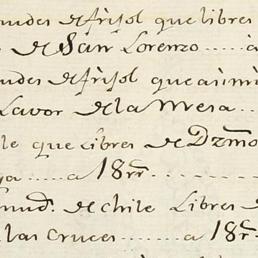 udes de frisol que libres
de San Lorenzo ..... a
udes de frisol que asimi
Lavor de la Mesa ....
le que Libres de Dzmo
ya ..... a 18rr.
mud. de chile Libres d
las Cruces ..... a 18rr.